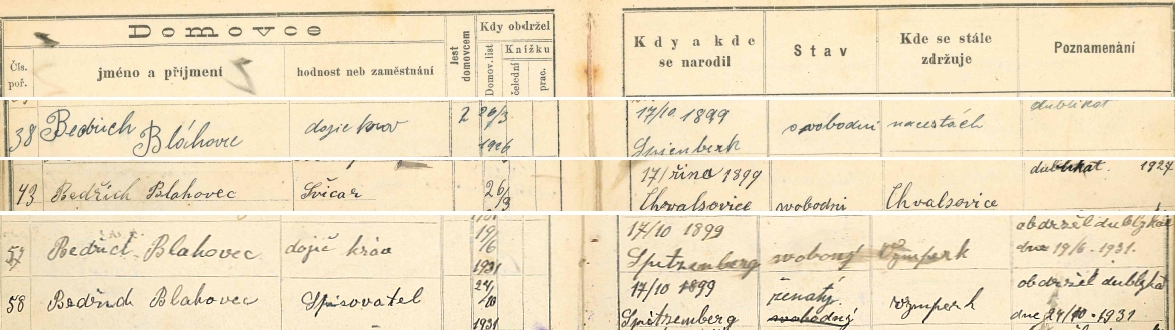 Domovce
Kdy obdržel
Čís. poř.
jméno a příjmení
hodnost neb zaměstnání
Jest domovcem
Domov. list
Knížku
čelední
prac.
Kdy a kde se narodil
Stav
Kde se stále zdržuje
Poznamenání
38 Bedřich dojic krav 2 26/3 17/10 1899 svobodni na cestách dublikat
Bláhovec 1926
43 Bedřich Blahovec Švicar 26/3 17/října 1899 Chvalšovice svobodni Chvalsovice dublikat 1927
57 Bedřich Blahovec dojič kráv 19/6 1931 17/10 1899 Spitzenberg svobony Vzmperk obdržel dublykat dne 19/6 - 1931.
58 Bedřich Blahovec Spisovatel 24/10 1931 17/10 1899 Spitzemberg ženatý. svobodný vzmperk obdržel dublykat dne 24/10 - 1931